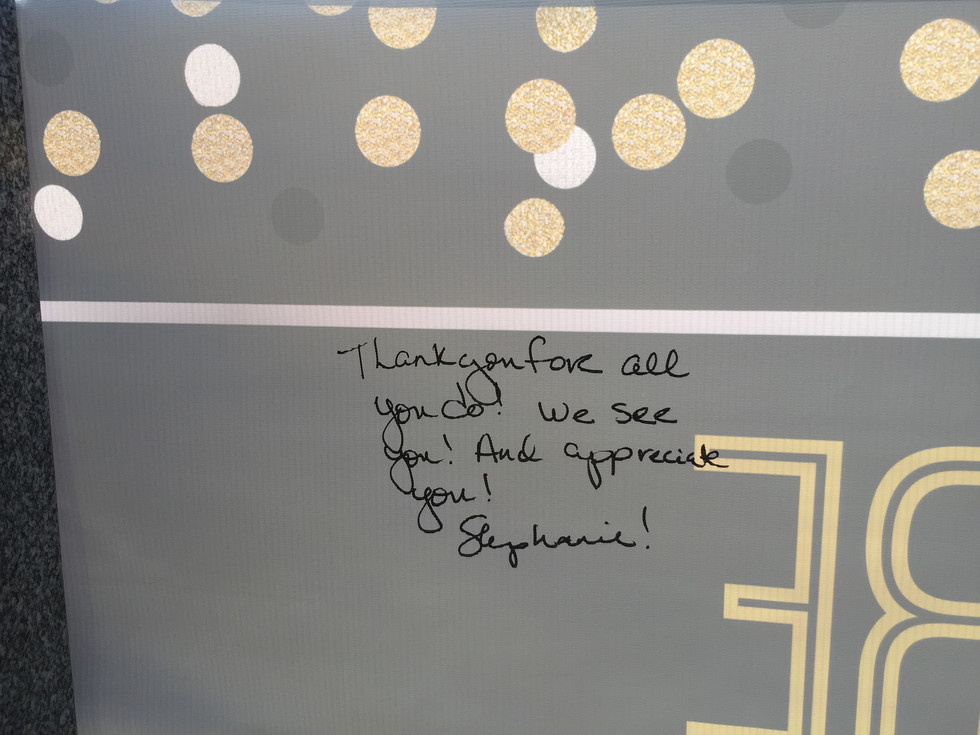 Thank you for all
you do! We see
you! And appreciate
you!
Stephanie!